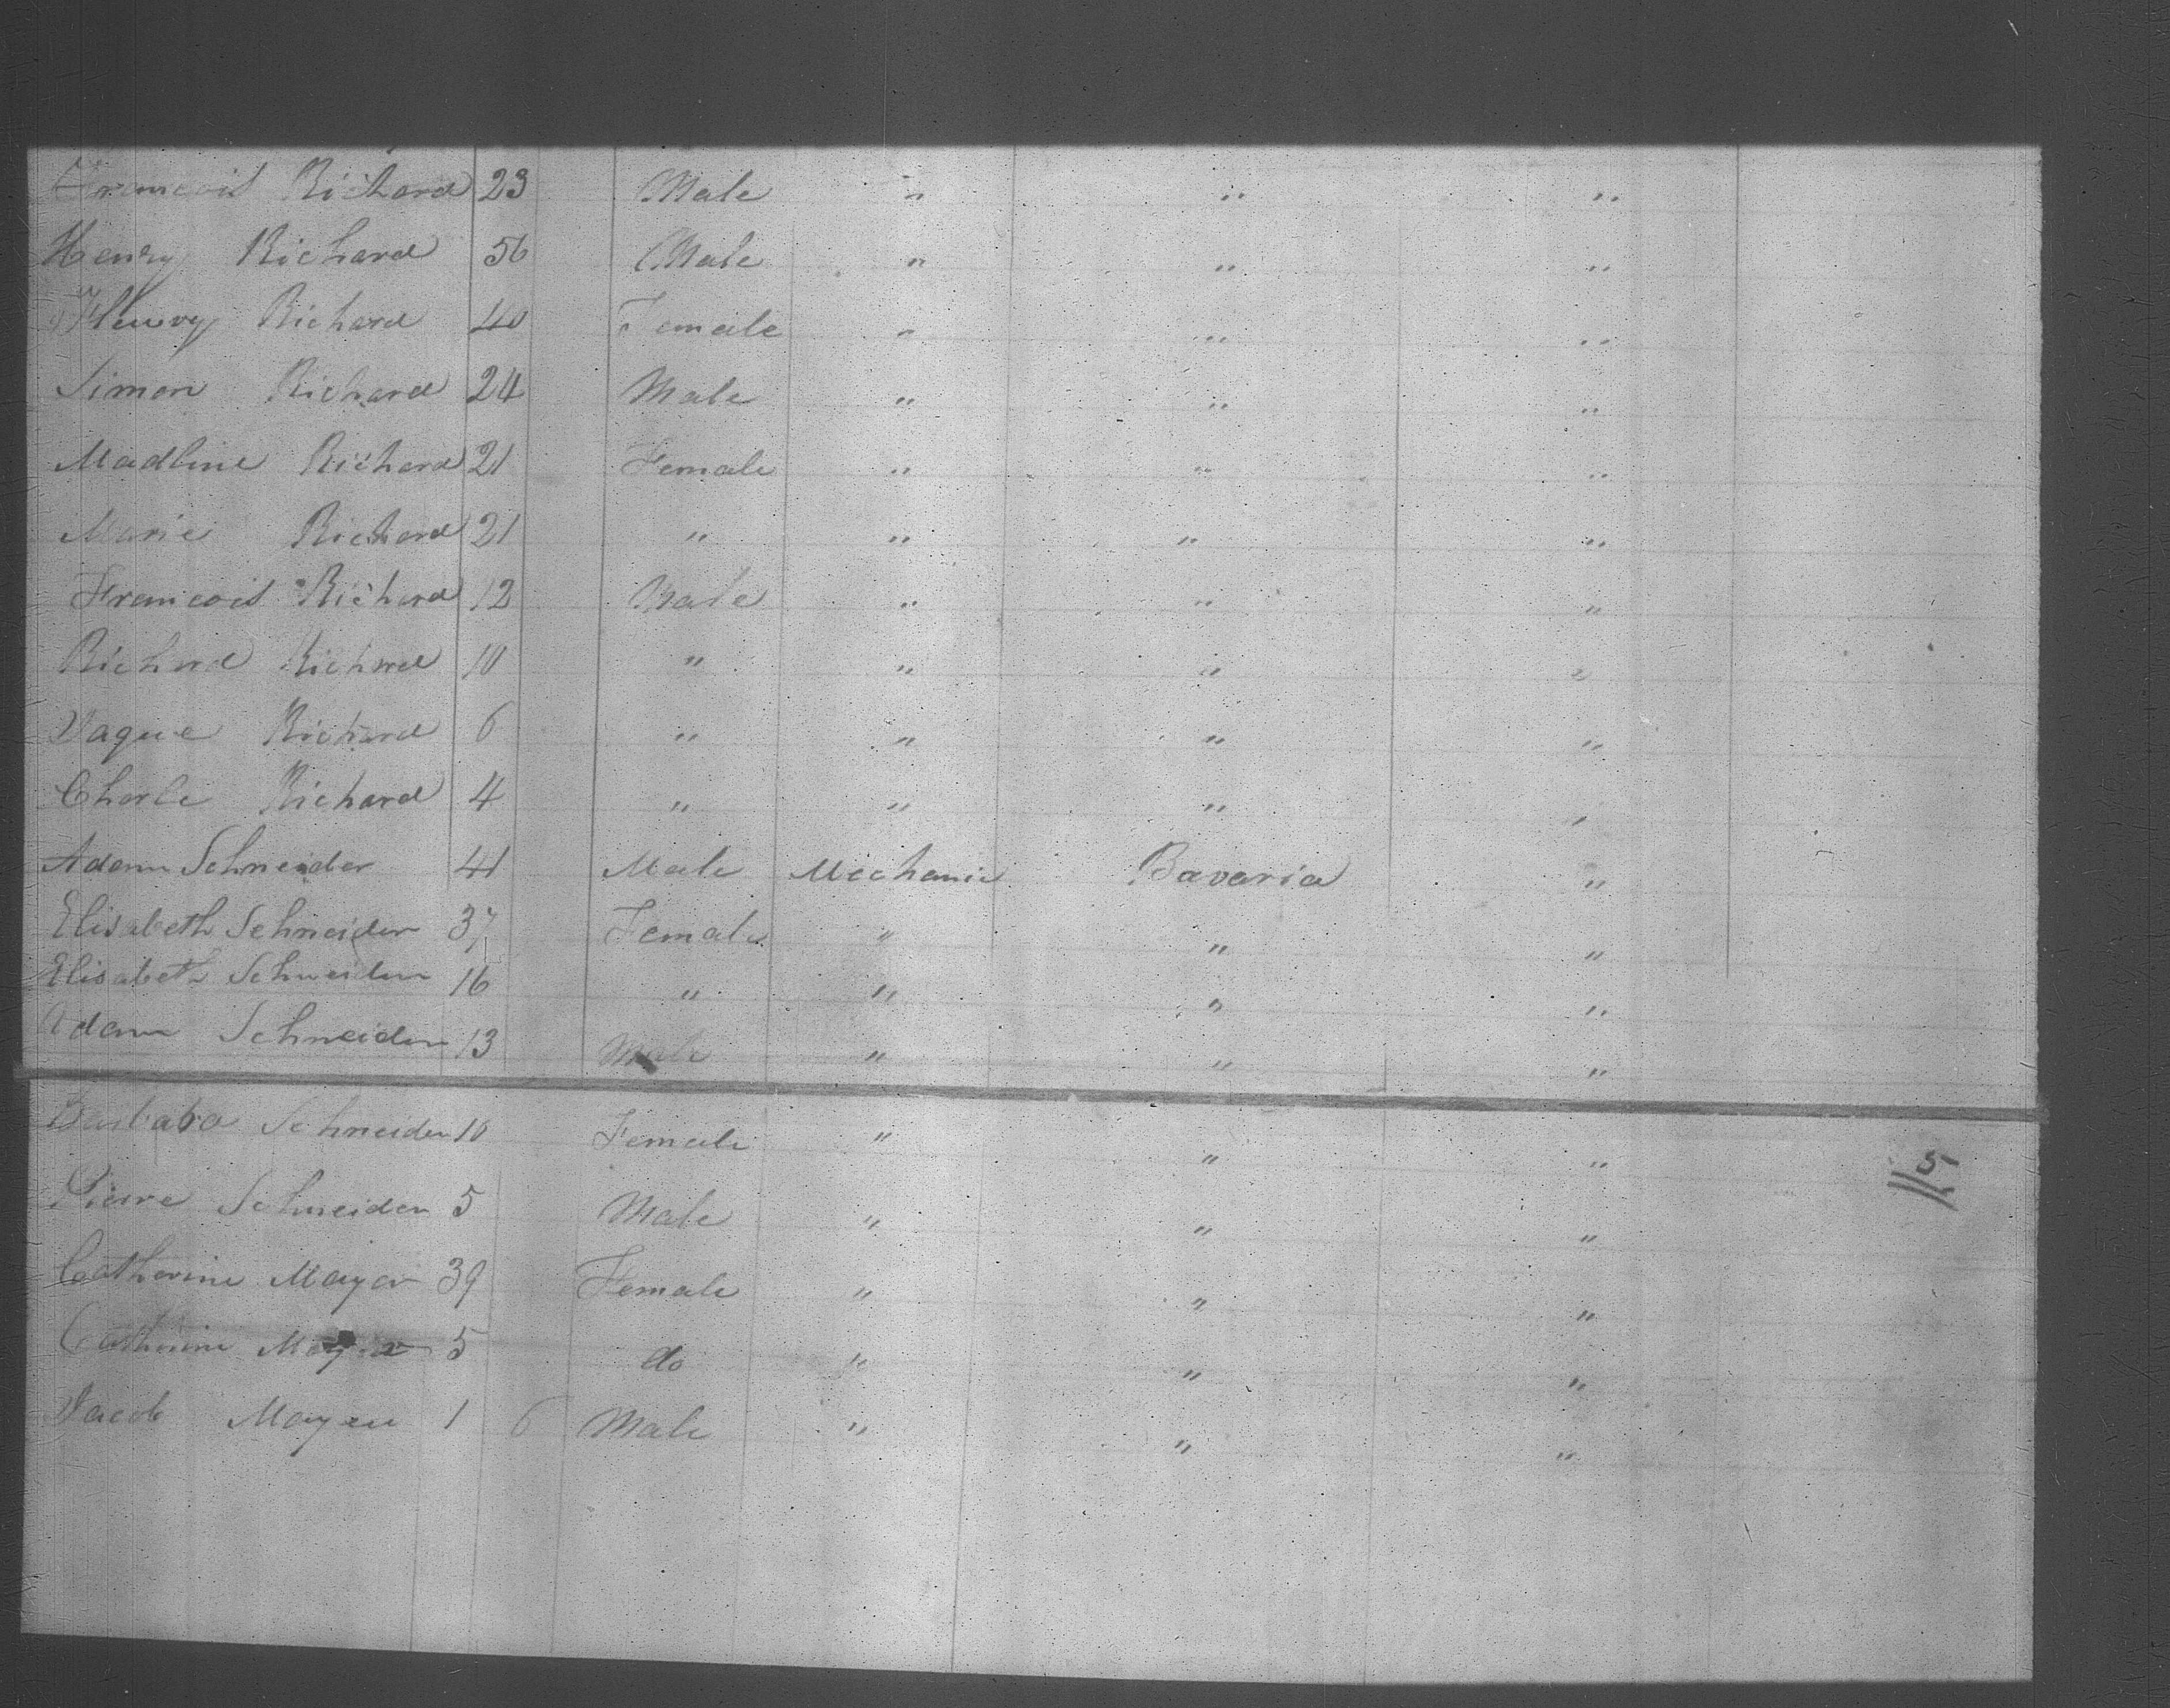 Francois Richard 23 Male " " "
Henry Richard 56 Male " " "
Fleury Richard 40 Female " " "
Simon Richard 24 Male " " "
Madline Richard 21 Female " " "
Marie Richard 21 " " " "
Francois Richard 12 Male " " "
Richard Richard 10 " " " "
Jaque Richard 6 " " " "
Charle Richard 4 " " " "
Adam Schneider 41 Male Mechanic Bavaria "
Elisabeth Schneider 37 Female " " "
Elisabeth Schneider 16 " " " "
Adam Schneider 13 Male " " "
Barbara Schneider 10 Female " " "
Pierre Schneider 5 Male " " "
Catherine Mayer 39 Female " " "
Catherine Mayer 5 do " " "
Jacob Mayer 1 6 Male " " "